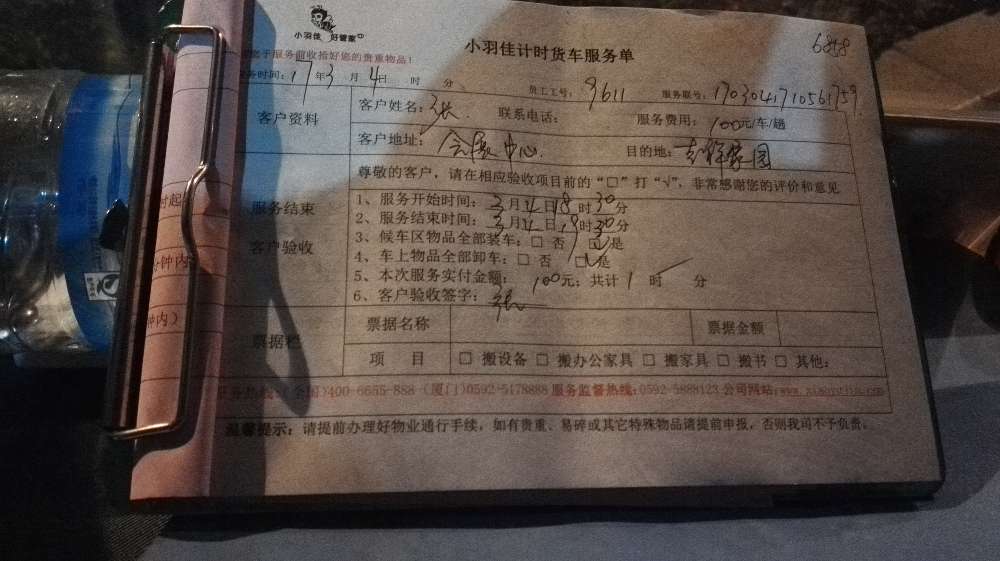 小羽佳 好管家
小羽佳计时货车服务单
6858
于服务前收拾好您的贵重物品!
服务时间: 17年3月4日 时 分 员工工号: 9611 服务联号: 1703041710561759
客户资料
客户姓名: 张 联系电话: 服务费用: 100元/车/趟
客户地址: 会展中心 目的地: 吉祥家园
尊敬的客户，请在相应验收项目前的“□”打“√”，非常感谢您的评价和意见
服务结束
客户验收
1、服务开始时间: 3月4日18时30分
2、服务结束时间: 3月4日19时30分
3、候车区物品全部装车: □ 否 □是
4、车上物品全部卸车: □ 否 □是
5、本次服务实付金额: 100元; 共计1时 分
6、客户验收签字: 张
票据栏
票据名称 票据金额
项 目 □ 搬设备 □ 搬办公家具 □ 搬家具 □ 搬书 □ 其他:
全国)400-6655-888 (厦门)0592-5178888 服务监督热线:0592-5888123 公司网站:
温馨提示: 请提前办理好物业通行手续，如有贵重、易碎或其它特殊物品请提前申报，否则我司不予负责。
时起
分钟内
钟内)